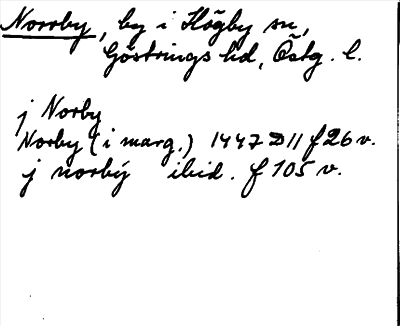 Norrby, by i Högby sn,
Göstrings hd, Östg. l.
j Norby
Norby (i marg.) 1447 D 11 f 26 v.
j norbÿ ibid. f 105 v.